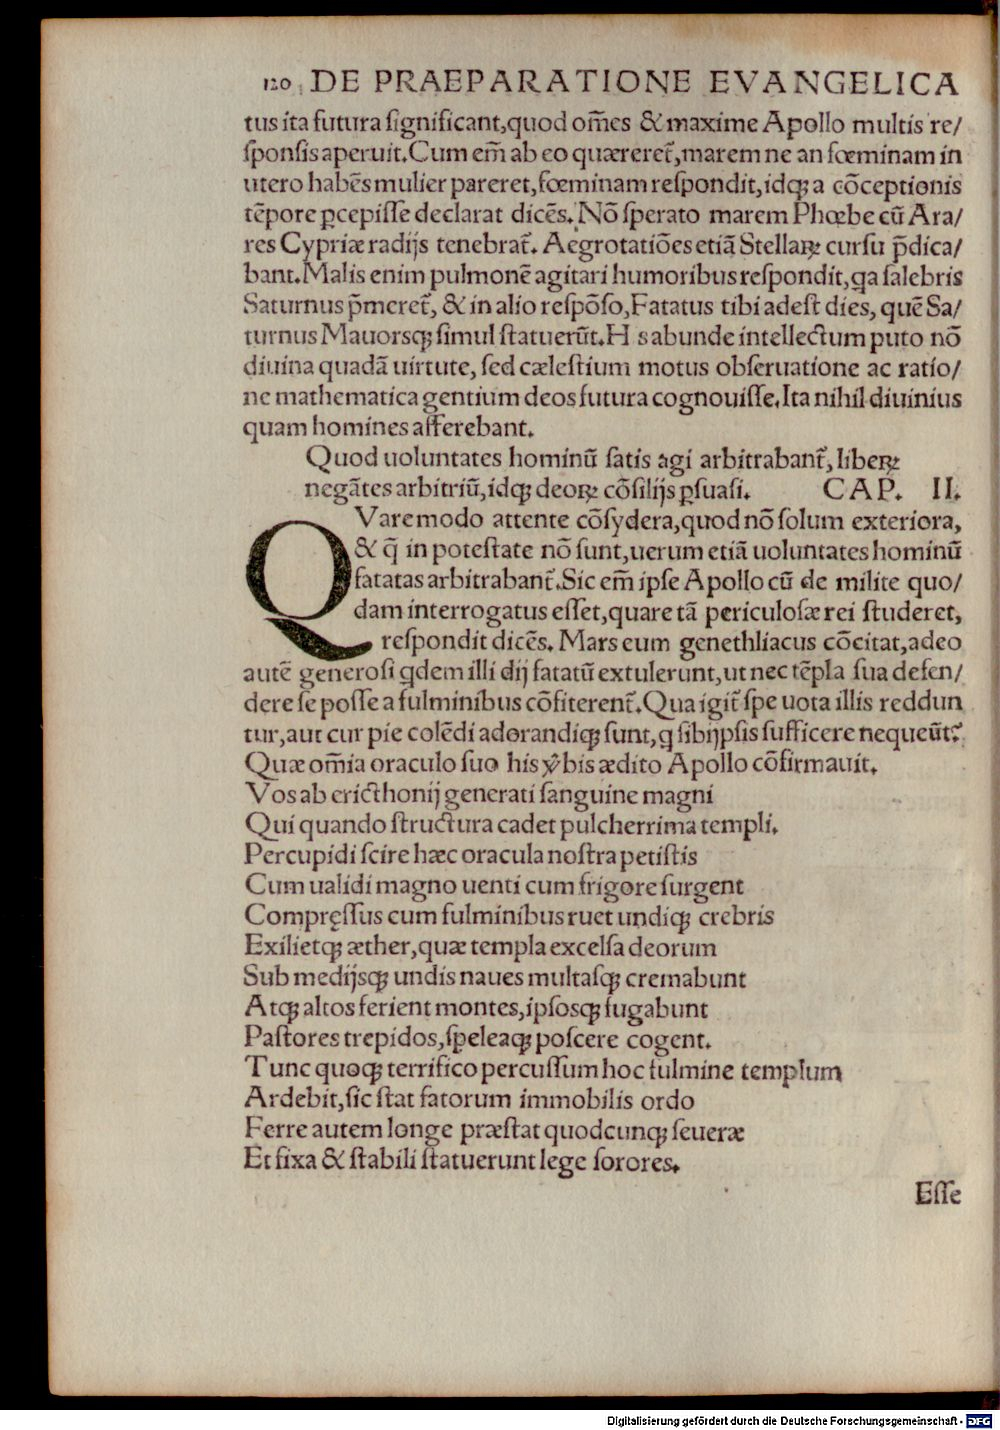 120 DE PRAEPARATIONE EVANGELICA
tus ita futura ſignificant,quod om̃es & maxime Apollo multis re/
ſponſis aperuit.Cum em̃ ab eo quæreret̃,marem ne an fœminam in
utero habẽs mulier pareret,fœminam reſpondit,idqꝫ a cõceptionis
tẽpore ꝑcepiſſe declarat dicẽs. Nõ ſperato marem Phœbe cũ Ara/
res Cypriæ radijs tenebrat̃. Aegrotatiões etiã Stellaꝝ curſu p̃dica/
bant.Malis enim pulmonẽ agitari humoribus reſpondit,ꝗa ſalebris
Saturnus p̃meret̃, & in alio reſpõſo,Fatatus tibi adeſt dies, quẽ Sa/
turnus Mauorsqꝫ ſimul ſtatuerũt.H s abunde intellectum puto nõ
diuina quadã uirtute, ſed cæleſtium motus obſeruatione ac ratio/
ne mathematica gentium deos futura cognouiſſe.Ita nihil diuinius
quam homines afferebant.
Quod uoluntates hominũ ſatis agi arbitrabant̃, liberꝝ
negãtes arbitriũ,idqꝫ deoꝝ cõſilijs ꝑſuaſi. CAP. II.
QVare modo attente cõſydera,quod nõ ſolum exteriora,
& q̃ in poteſtate nõ ſunt,uerum etiã uoluntates hominũ
fatatas arbitrabant̃.Sic em̃ ipſe Apollo cũ de milite quo/
dam interrogatus eſſet,quare tã periculoſæ rei ſtuderet,
reſpondit dicẽs. Mars eum genethliacus cõcitat,adeo
autẽ generoſi ꝗdem illi dij fatatũ extulerunt,ut nec tẽpla ſua defen/
dere ſe poſſe a fulminibus cõfiterent̃.Qua igit̃ ſpe uota illis reddun
tur,aut cur pie colẽdi adorandiqꝫ ſunt,ꝗ ſibijpſis ſufficere nequeũt?
Quæ om̃ia oraculo ſuo his v̾bis ædito Apollo cõfirmauit.
Vos ab ericthonij generati ſanguine magni
Qui quando ſtructura cadet pulcherrima templi.
Percupidi ſcire hæc oracula noſtra petiſtis
Cum ualidi magno uenti cum frigore ſurgent
Compręſſus cum fulminibus ruet undiqꝫ crebris
Exilietqꝫ æther,quæ templa excelſa deorum
Sub medijsqꝫ undis naues multaſqꝫ cremabunt
Atqꝫ altos ferient montes,ipſosqꝫ fugabunt
Paſtores trepidos,ſpeleaqꝫ poſcere cogent.
Tunc quoqꝫ terrifico percuſſum hoc fulmine templum
Ardebit,ſic ſtat fatorum immobilis ordo
Ferre autem longe præſtat quodcunqꝫ ſeueræ
Et fixa & ſtabili ſtatuerunt lege ſorores.
Eſſe
Digitalisierung gefördert durch die Deutsche Forschungsgemeinschaft - DFG